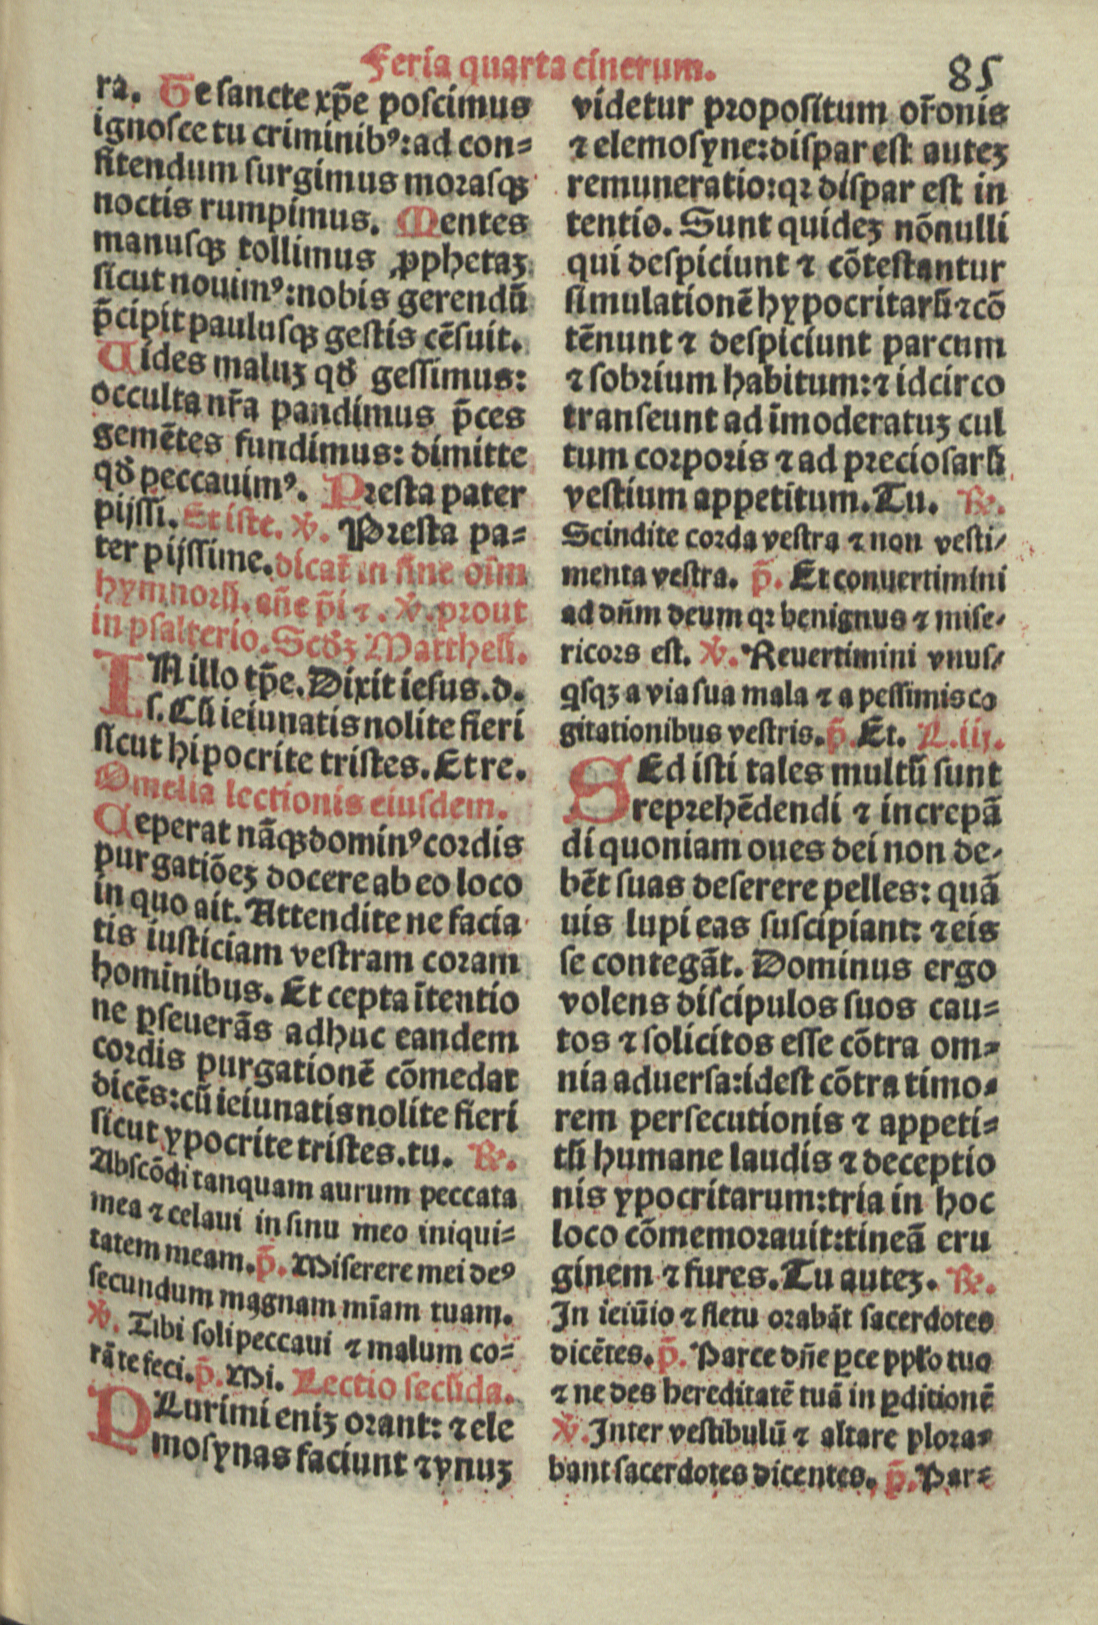 Feria quarta cinerum.
85
ra. Te sancte xp̄e poscimus
ignosce tu criminibꝰ: ad con-
fitendum surgimus morasqꝫ
noctis rumpimus. Mentes
manusqꝫ tollimus ꝓphetaꝫ
sicut nouimꝰ: nobis gerendū
p̄cipit paulusqꝫ gestis cēsuit.
Uides maluꝫ qd̄ gessimus:
occulta nr̄a pandimus p̄ces
gemētes fundimus: dimitte
qd̄ peccauimꝰ. Presta pater
pijssi. Et iste. ℣. Presta pa-
ter pijssime. dicat̄ in fine oīm
hymnorū. añe p̄i ⁊. ℣. prout
in psalterio. Scd̄ꝫ Mattheū.
IN illo tp̄e. Dixit iesus. d.
s. Cū ieiunatis nolite fieri
sicut hipocrite tristes. Et re.
Omelia lectionis eiusdem.
Ceperat nāqꝫ dominꝰ cordis
purgatiōeꝫ docere ab eo loco
in quo ait. Attendite ne facia
tis iusticiam vestram coram
hominibus. Et cepta ītentio
ne ꝑseuerās adhuc eandem
cordis purgationē cōmedat
dicēs: cū ieiunatis nolite fieri
sicut ypocrite tristes. tu. ℟.
Abscōdi tanquam aurum peccata
mea ⁊ celaui in sinu meo iniqui-
tatem meam. p̄. Miserere mei deꝰ
secundum magnam mīam tuam.
℣. Tibi soli peccaui ⁊ malum co-
rā te feci. p̄. Mi. Lectio secūda.
PLurimi eniꝫ orant: ⁊ ele
mosynas faciunt ⁊ vnuꝫ
videtur propositum or̄onis
⁊ elemosyne: dispar est auteꝫ
remuneratio: qꝛ dispar est in
tentio. Sunt quideꝫ nōnulli
qui despiciunt ⁊ cōtestantur
simulationē hypocritarū ⁊ cō
tēnunt ⁊ despiciunt parcum
⁊ sobrium habitum: ⁊ idcirco
transeunt ad īmoderatuꝫ cul
tum corporis ⁊ ad preciosarū
vestium appetitum. Tu. ℟.
Scindite corda vestra ⁊ non vesti-
menta vestra. p̄. Et conuertimini
ad dn̄m deum qꝛ benignus ⁊ mise-
ricors est. ℣. Reuertimini vnus-
qsqꝫ a via sua mala ⁊ a pessimis co
gitationibus vestris. p̄. Et. L. iij.
SEd isti tales multū sunt
reprehēdendi ⁊ increpā
di quoniam oues dei non de-
bēt suas deserere pelles: quā
uis lupi eas suscipiant: ⁊ eis
se contegāt. Dominus ergo
volens discipulos suos cau-
tos ⁊ solicitos esse cōtra om-
nia aduersa: idest cōtra timo-
rem persecutionis ⁊ appeti-
tū humane laudis ⁊ deceptio
nis ypocritarum: tria in hoc
loco cōmemorauit: tineā eru
ginem ⁊ fures. Tu auteꝫ. ℟.
In ieiūio ⁊ fletu orabāt sacerdotes
dicētes. p̄. Parce dn̄e ꝑce ppl̄o tuo
⁊ ne des hereditatē tuā in ꝑditionē
℣. Inter vestibulū ⁊ altare plora-
bant sacerdotes dicentes. p̄. Par-